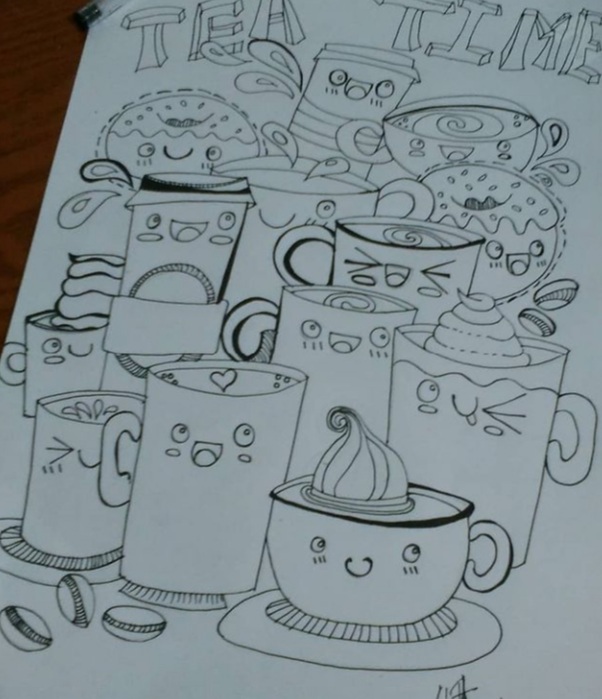 TEA TIME